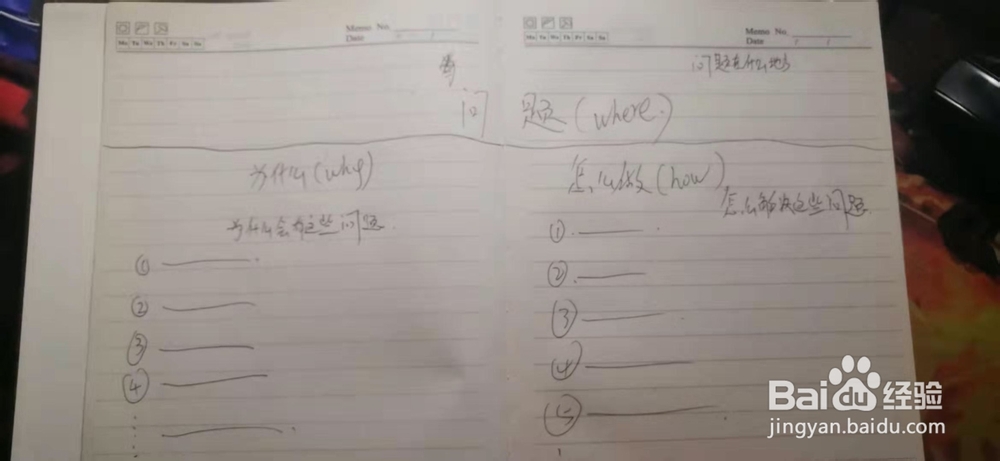 Memo No.
Mo Tu We Th Fr Sa Su
Date
Memo No.
Mo Tu We Th Fr Sa Su
Date / /
问题在什么地方
问题(where.)
为什么(why)
为什么会有这些问题
①
②
③
④
怎么做(how)
怎么解决这些问题
①
②
③
④
⑤
Baidu经验
jingyan.baidu.com